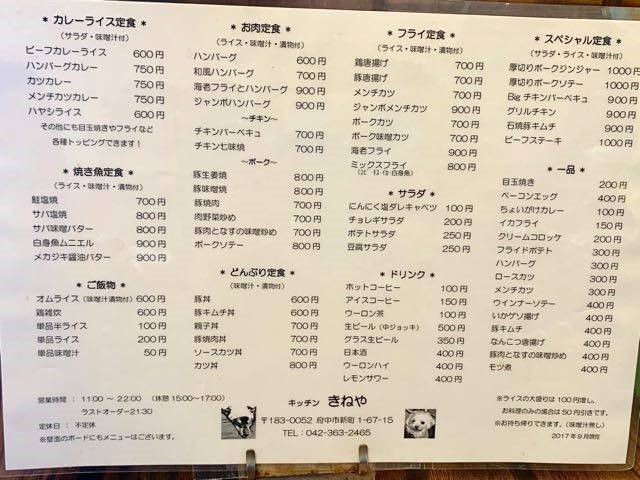 * カレーライス定食 *
(サラダ・味噌汁付)
ビーフカレーライス 600円
ハンバーグカレー 750円
カツカレー 750円
メンチカツカレー 750円
ハヤシライス 600円
その他にも目玉焼きやフライなど
各種トッピングできます!
* 焼き魚定食 *
(ライス・味噌汁・漬物付)
鮭塩焼 700円
サバ塩焼 800円
サバ味噌バター 800円
白身魚ムニエル 900円
メカジキ醤油バター 900円
* ご飯物 *
オムライス(味噌汁漬物付) 600円
鶏雑炊 600円
単品半ライス 100円
単品ライス 200円
単品味噌汁 50円
* お肉定食 *
(ライス・味噌汁・漬物付)
ハンバーグ 600円
和風ハンバーグ 700円
海老フライとハンバーグ 900円
ジャンボハンバーグ 900円
~チキン~
チキンバーベキュ 700円
チキン七味焼 700円
~ポーク~
豚生姜焼 800円
豚味噌焼 800円
豚焼肉 700円
肉野菜炒め 700円
豚肉となすの味噌炒め 700円
ポークソテー 800円
* どんぶり定食 *
(味噌汁・漬物付)
豚丼 600円
豚キムチ丼 600円
親子丼 700円
豚焼肉丼 700円
ソースカツ丼 700円
カツ丼 800円
* フライ定食 *
(ライス・味噌汁・漬物付)
鶏唐揚げ 700円
豚唐揚げ 700円
メンチカツ 700円
ジャンボメンチカツ 900円
ポークカツ 700円
ポーク味噌カツ 700円
海老フライ 900円
ミックスフライ 900円
* サラダ *
にんにく塩ダレキャベツ 100円
チョレギサラダ 250円
ポテトサラダ 250円
豆腐サラダ 250円
* ドリンク *
ホットコーヒー 100円
アイスコーヒー 150円
ウーロン茶 100円
生ビール(中ジョッキ) 500円
グラス生ビール 350円
日本酒 400円
ウーロンハイ 400円
レモンサワー 400円
* スペシャル定食 *
(サラダ・ライス・味噌汁付)
厚切りポークジンジャー 1000円
厚切りポークソテー 1000円
Big チキンバーベキュ 900円
グリルチキン 900円
石焼豚キムチ 900円
ビーフステーキ 1000円
* 一品 *
目玉焼き 200円
ベーコンエッグ 400円
ちょいがけカレー 100円
イカフライ 150円
クリームコロッケ 200円
フライドポテト 300円
ハンバーグ 300円
ロースカツ 400円
メンチカツ 300円
ウインナーソテー 400円
いかゲソ揚げ 400円
豚キムチ 400円
なんこつ唐揚げ 400円
豚肉となすの味噌炒め 400円
モツ煮 400円
営業時間 : 11:00 ~ 22:00 (休憩 15:00~17:00)
ラストオーダー21:30
定休日 : 不定休
※壁面のボードにもメニューはございます。
キッチン きねや
〒183-0052 府中市新町 1-67-15
TEL : 042-363-2465
※ライスの大盛りは 100円増し、
お料理のみの場合は 50円引きです。
※お持ち帰りできます。(味噌汁無し)
2017年9月現在